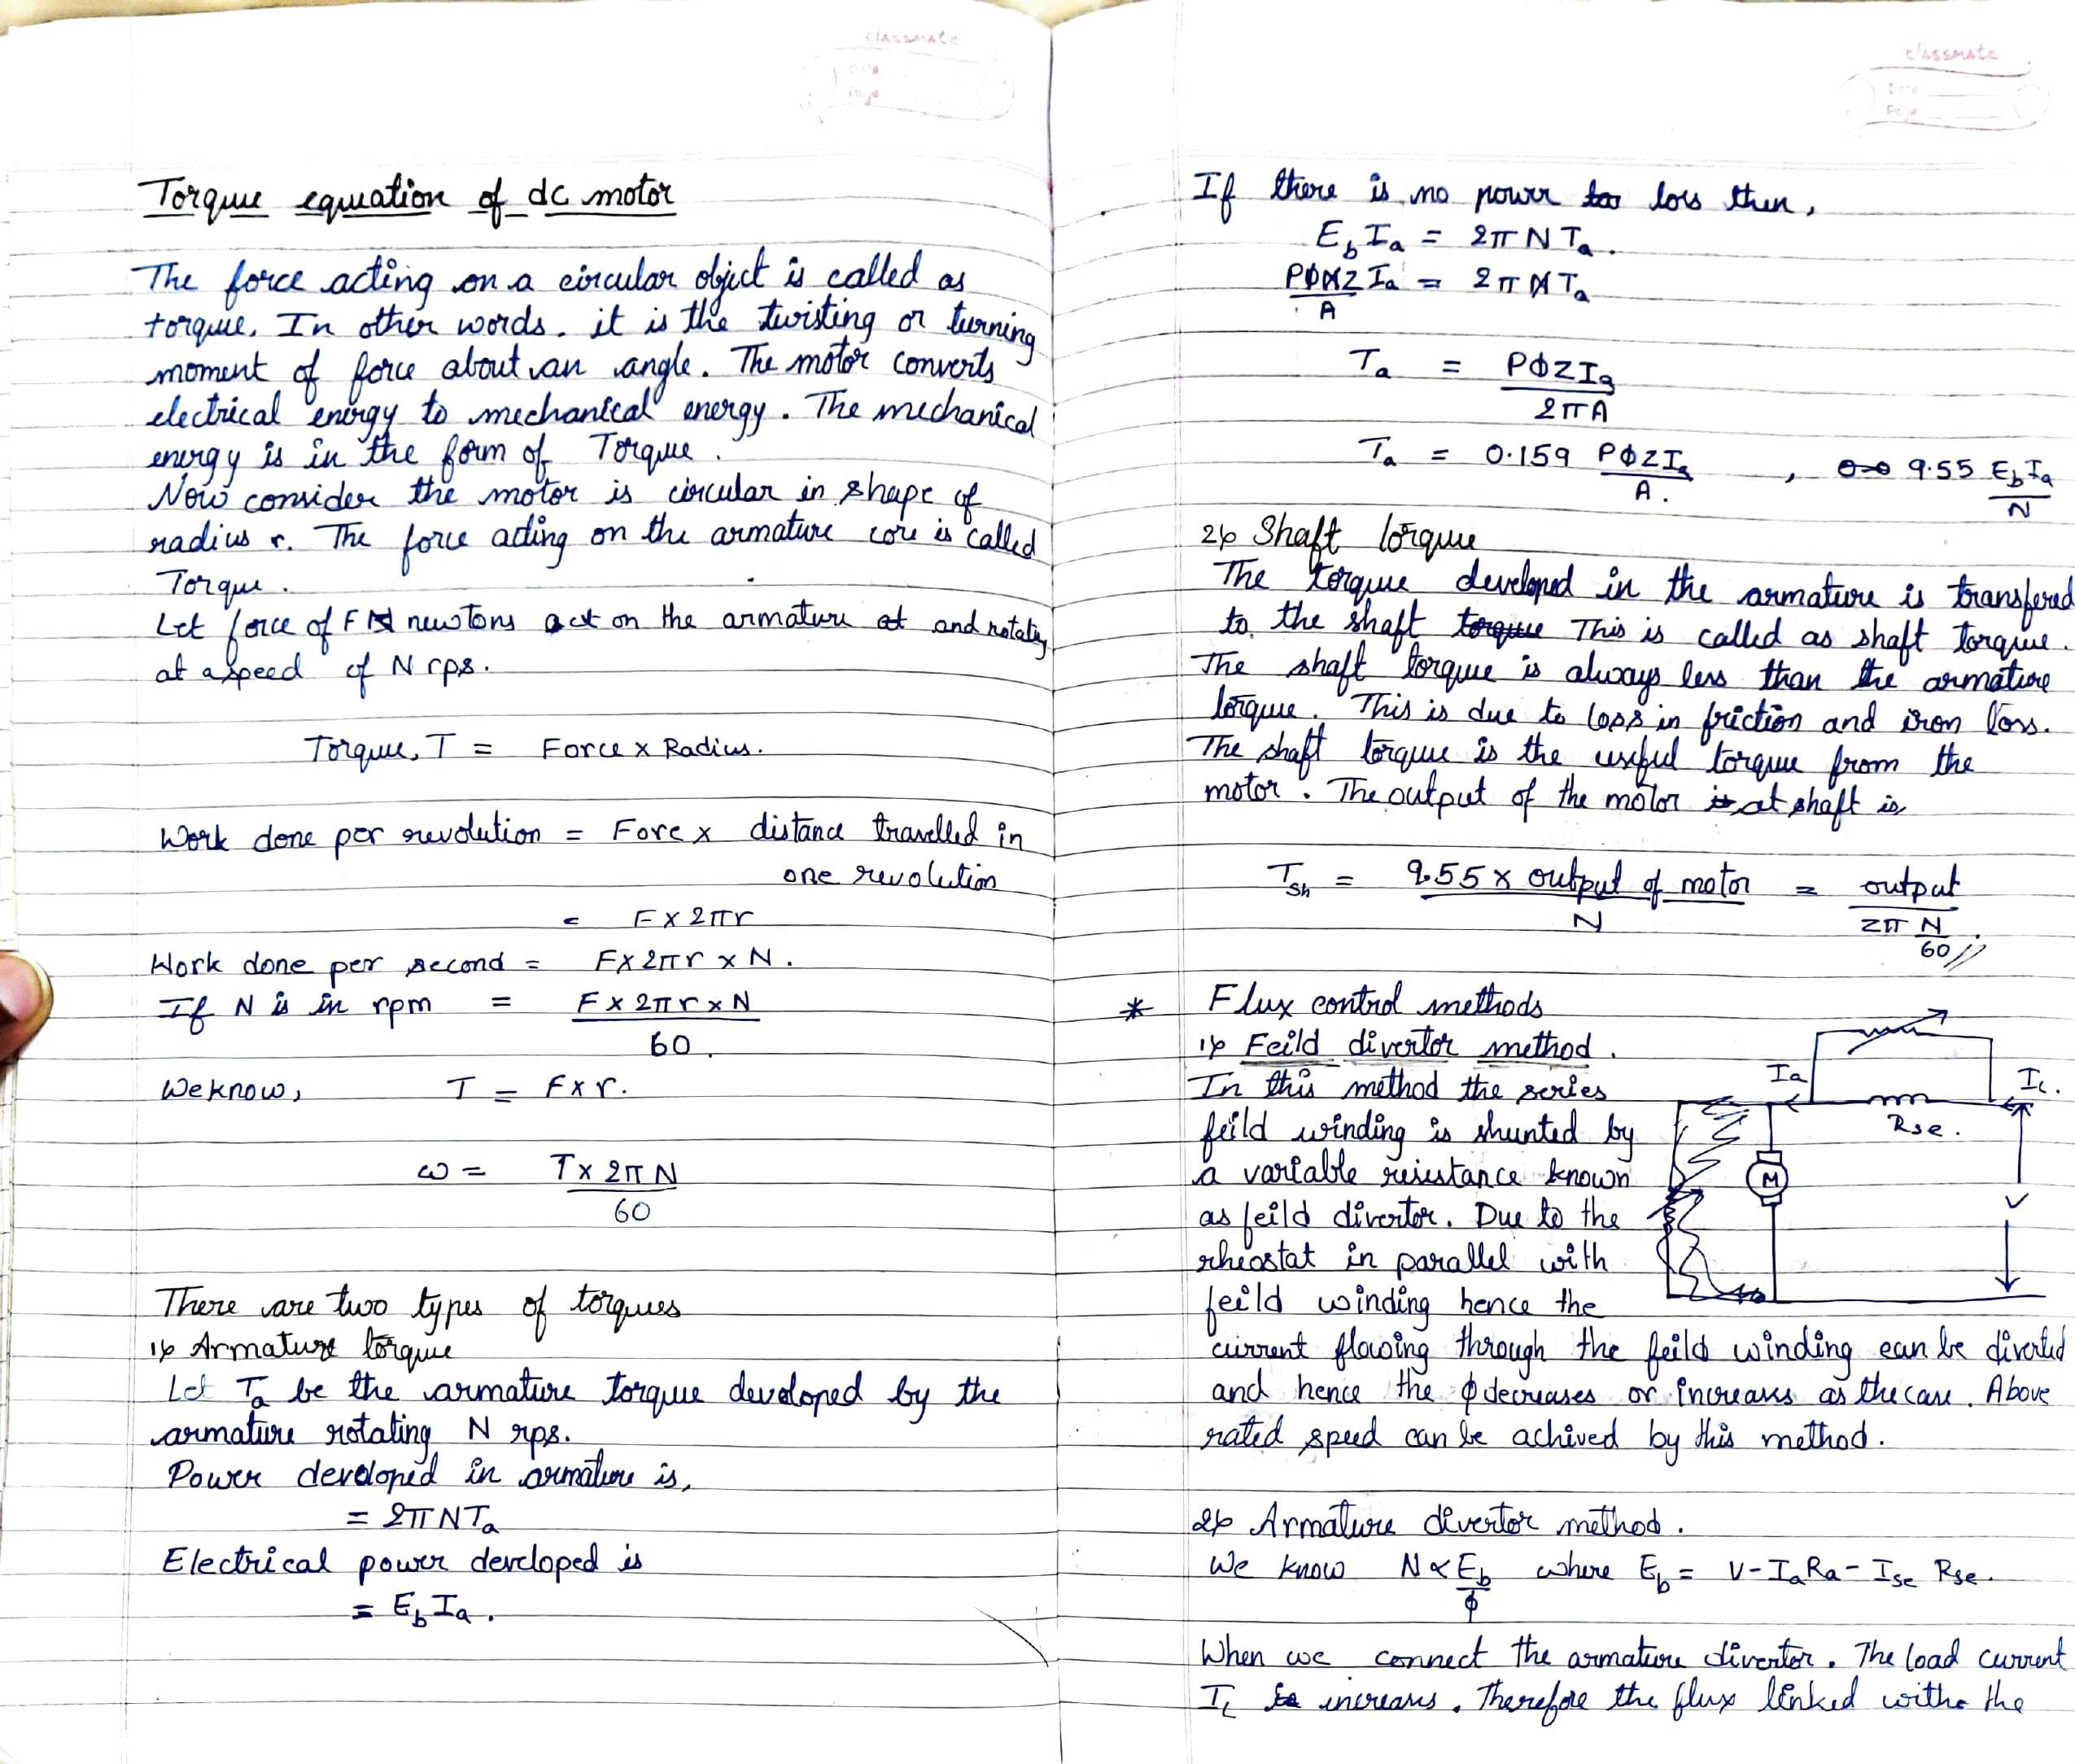 classmate
Date
Page
Torque equation of dc motor
The force acting on a circular object is called as
torque. In other words. it is the twisting or turning
moment of force about an angle. The motor converts
electrical energy to mechanical energy. The mechanical
energy is in the form of Torque.
Now consider the motor is circular in shape of
radius r. The force acting on the armature core is called
Torque.
Let force of F newtons act on the armature and rotating
at a speed of N rps.
Torque, T = Force x Radius.
Work done per revolution = Force x distance travelled in
one revolution
= F x 2πr
Work done per second = F x 2πr x N.
If N is in rpm = F x 2πr x N / 60.
We know, T = F x r.
ω = T x 2πN / 60
There are two types of torques
1) Armature torque
Let Ta be the armature torque developed by the
armature rotating N rps.
Power developed in armature is,
= 2πNTa
Electrical power developed is
= EbIa.
classmate
Date
Page
If there is no power loss then,
EbIa = 2πNTa.
PφNZ Ia / A = 2πNTa
Ta = PφZIa / 2πA
Ta = 0.159 PφZIa / A. , 9.55 EbIa / N
2) Shaft torque
The torque developed in the armature is transfered
to the shaft This is called as shaft torque.
The shaft torque is always less than the armature
torque. This is due to loss in friction and iron loss.
The shaft torque is the useful torque from the
motor. The output of the motor at shaft is
Tsh = 9.55 x output of motor / N = output / 2π N/60
* Flux control methods
1) Feild divertor method.
In this method the series
feild winding is shunted by
a variable resistance known
as feild divertor. Due to the
rheostat in parallel with
feild winding hence the
current flowing through the feild winding can be diverted
and hence the φ decreases or increases as the case. Above
rated speed can be achived by this method.
Ia
IL.
Rse.
M
V
2) Armature divertor method.
We know N ∝ Eb/φ where Eb = V-IaRa-Ise Rse.
When we connect the armature divertor. The load current
IL increases. Therefore the flux linked with the